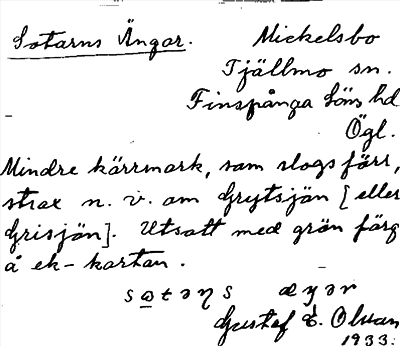 Sotarns Ängar.
Mickelsbo
Tjällmo sn.
Finspånga läns hd
Ögl.
Mindre kärrmark, som slogs förr,
strax n. v. om Grytsjön [eller
Grisjön]. Utsatt med grön färg
å ek-kartan.
Gustaf E. Olsson
1933.